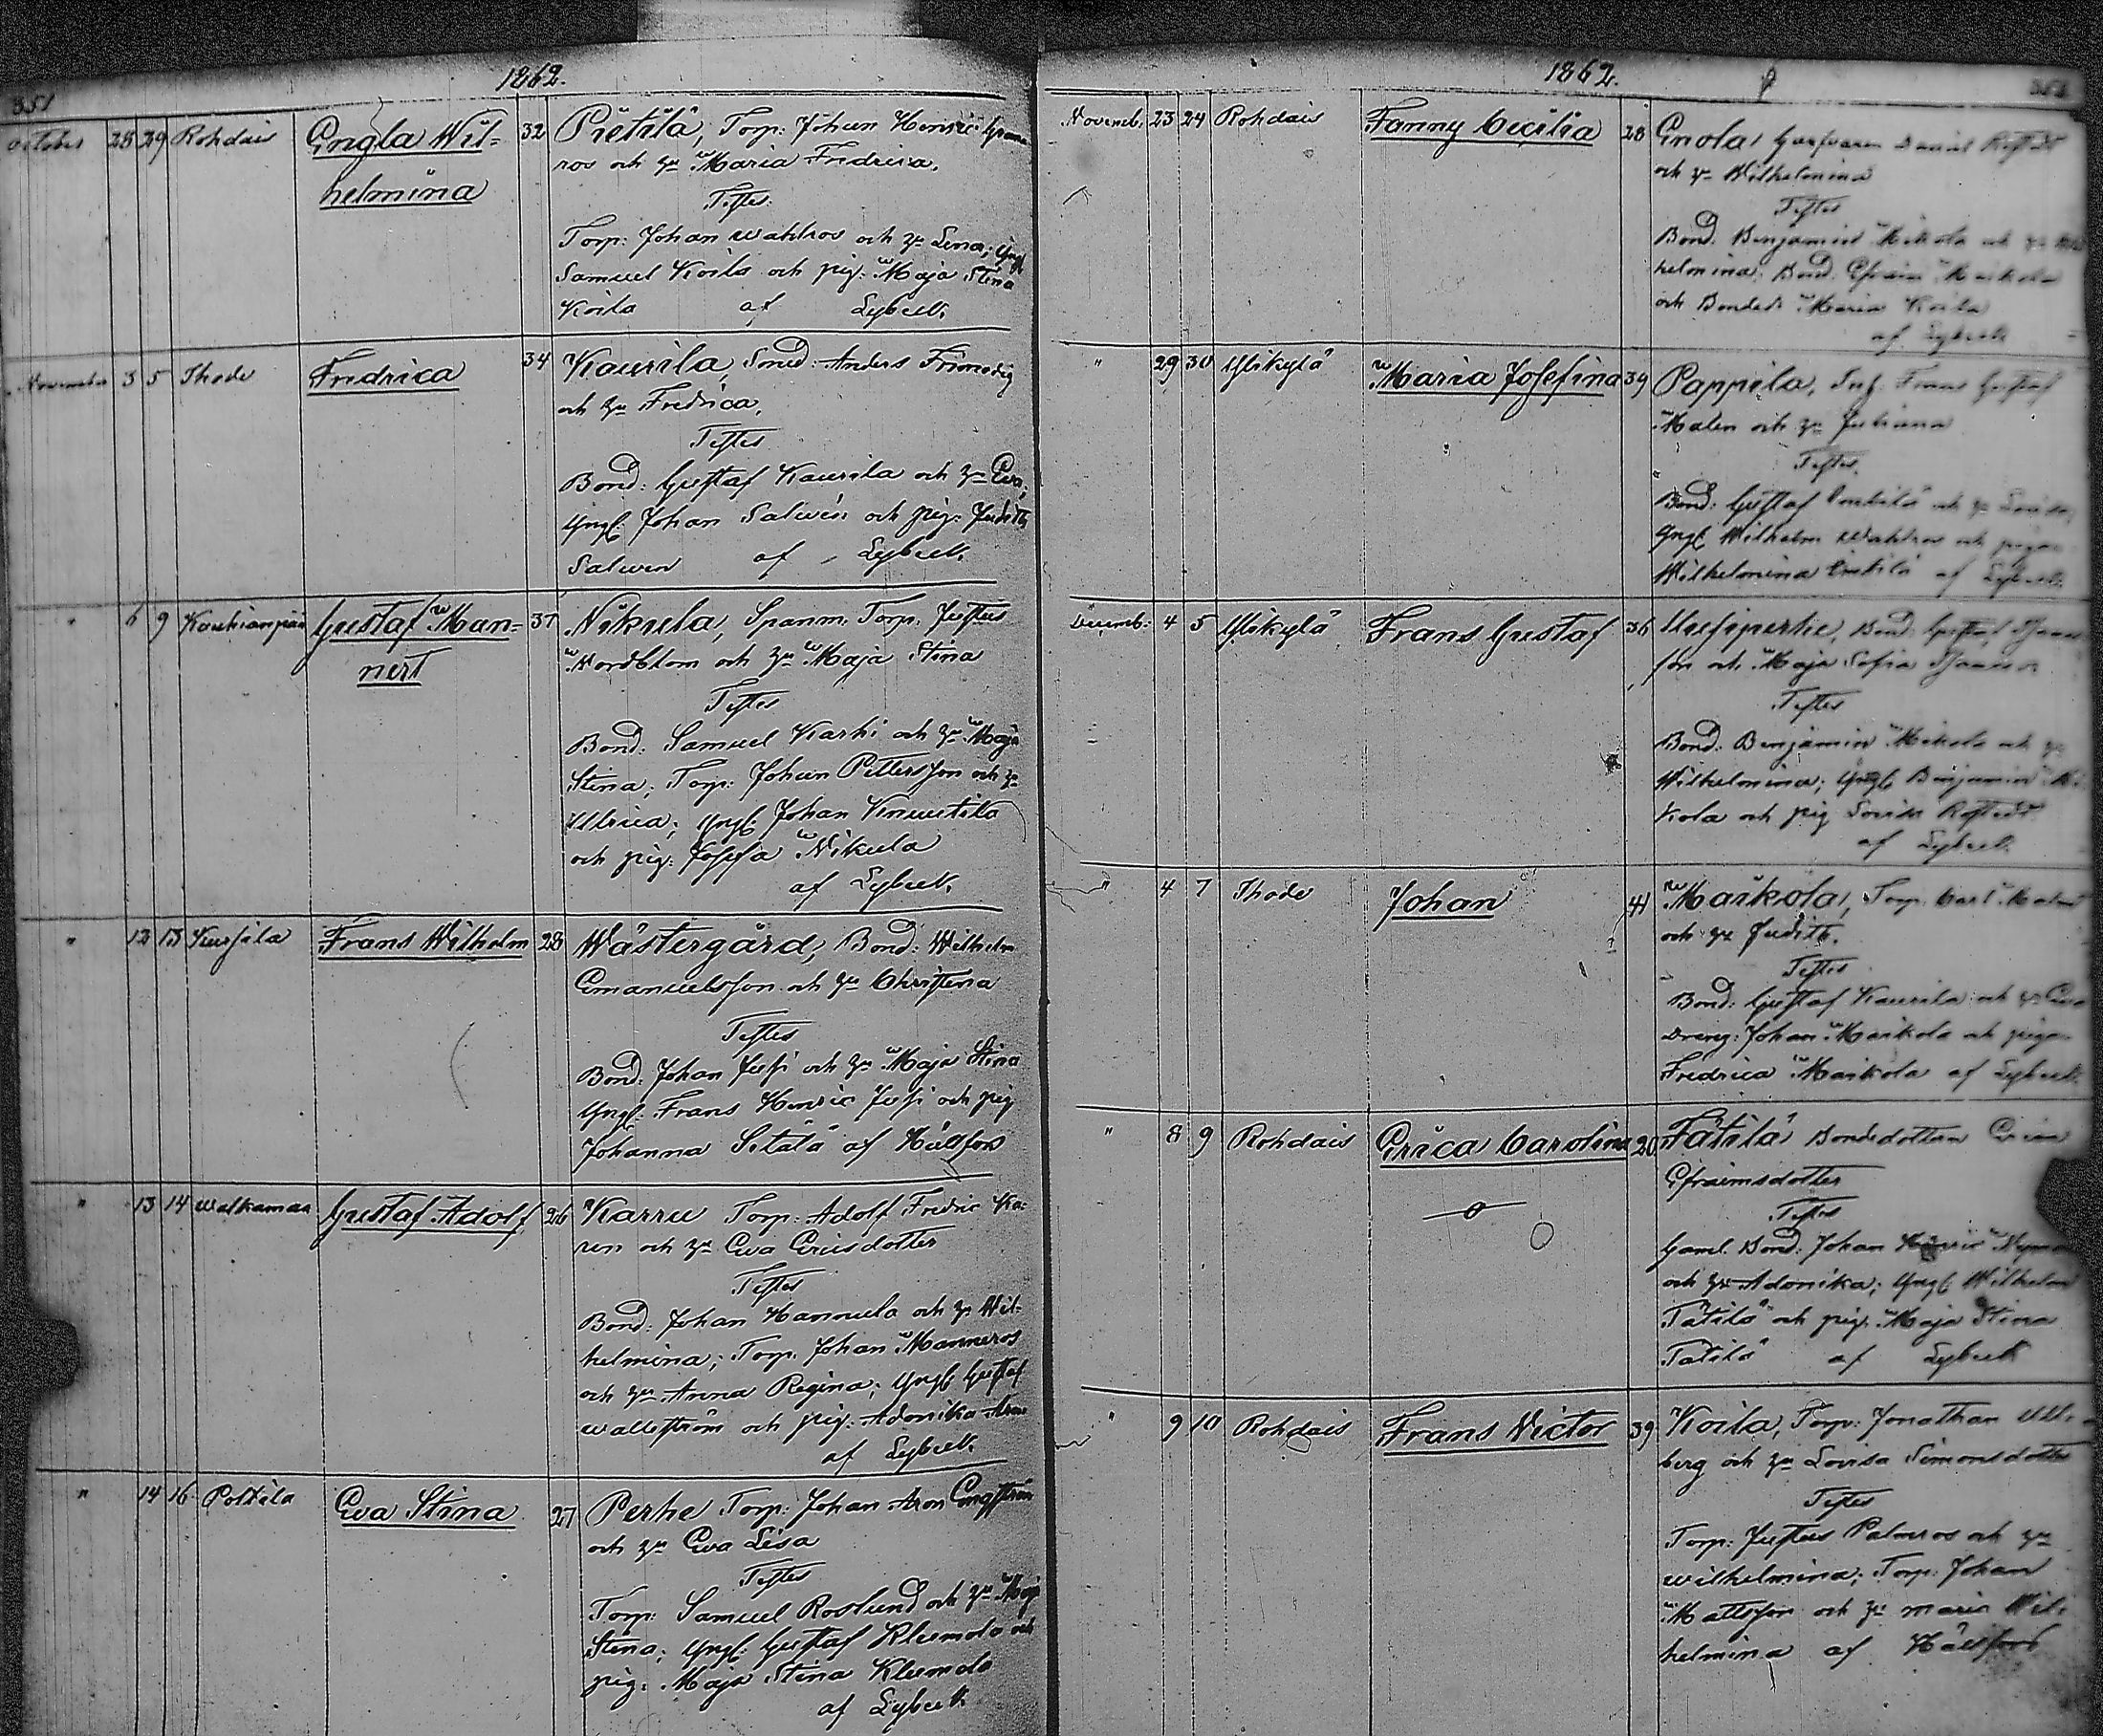 351
1862.
October 28 29 Rohdais Engla Wil- 32 Pietilä, Torp: Johan Henric
helmina ros och hu Maria Fredrica.
Testes:
Torp: Johan Wahlros och hu Lena; Yngl
Samuel Koila och pig: Maja Stina
Koila af Lybeck.
November 3 5 Thode Fredrica 34 Kaurila, Smed: Anders Frimodig
och hu Fredrica,
Testes
Bond: Gustaf Kaurila och hu Eva;
Yngl: Johan Salwén och pig: Judith
Salwen af Lybeck.
" 6 9 Kauhianpää Gustaf Man- 37 Nikula, Spanm. Torp: Justus
nert Nordblom och hu Maja Stina
Testes
Bond: Samuel Karhi och hu Maja
Stina; Torp: Johan Pettersson och hu
Ulrica; Yngl: Johan Knuutila
och pig: Josefa Nikula
af Lybeck.
" 12 13 Kursila Frans Wilhelm 28 Wästergård, Bond: Wilhelm
Emanuelsson och hu Christina
Testes
Bond: Johan Jussi och hu Maja Stina
Yngl: Frans Henric Jussi och pig
Johanna Sitälä af Hällfors
" 13 14 Walkamaa Gustaf Adolf 26 Karru Torp: Adolf Fredric Ka-
ren och hu Eva Ericsdotter
Testes
Bond: Johan Hannula och hu Wil-
helmina; Torp. Johan Manneros
och hu Anna Regina; Yngl Gustaf
Wallström och pig: Adonika
af Lybeck.
" 14 16 Polttila Eva Stina 27 Perhe Torp: Johan Aron Engström
och hu Eva Lisa
Testes
Torp: Samuel Roslund och hu Maja
Stina; Yngl: Gustaf Kleemola och
pig: Maja Stina Kleemola
af Lybeck.
1862.
Novemb. 23 24 Rohdais Fanny Cecilia 28 Enola, Daniel
och hu Wilhelmina
Testes
Bond. Benjamin Mikola och hu Wil
helmina; Bond. Efraim Maikola
och Bonded: Maria Koila
af Lybeck
" 29 30 Ylikylä Maria Josefina 34 Pappila, Frans Gustaf
Malen och hu Juliana
Testes.
Bond: Gustaf och hu Lovisa;
Yngl Wilhelm Wahlros och pigan
Wilhelmina af Lybeck.
Decemb: 4 5 Ylikylä Frans Gustaf 36 Uusipertu, Bond: Gustaf
son och Maja Sofia
Testes
Bond: Benjamin Mikola och hu
Wilhelmina; Yngl Benjamin Mi-
kola och pig Lovisa
af Lybeck.
" 4 7 Thode Johan 41 Maikola, Torp. Carl
och hu Judith.
Testes
Bond: Gustaf Kaurila och hu Eva
Dreng: Johan Maikola och pigan
Fredrica Maikola af Lybeck.
" 8 9 Rohdais Erica Carolina 20 Tätilä Bondedottren Erica
Efraimsdotter
Testes
Gaml. Bond: Johan Henric
och hu Adonika; Yngl Wilhelm
Tätilä och pig. Maja Stina
Tätilä af Lybeck
" 9 10 Rohdais Frans Victor 39 Koila, Torp: Jonathan
berg och hu Lovisa Simonsdotter
Testes
Torp: Justus Palmros och hu
Wilhelmina; Torp: Johan
Mattsson och hu Maria Wil-
helmina af Hällfors